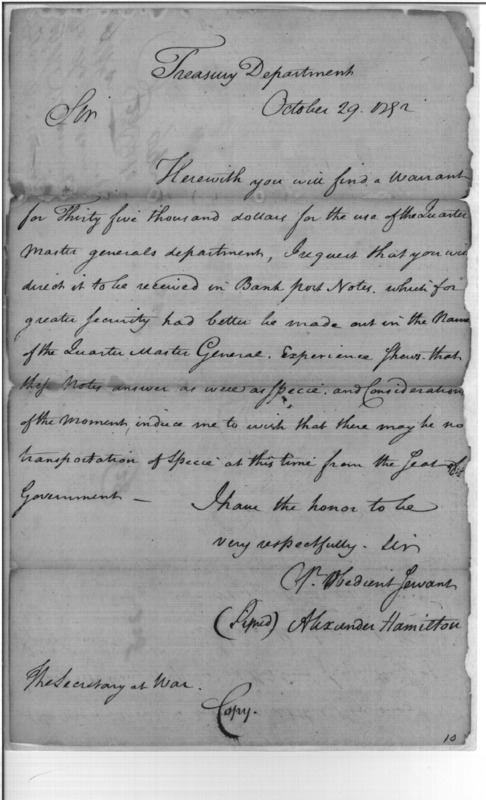 Treasury Department
October 29. 1792
Sir
Herewith you will find a Warrant
for Thirty five thousand dollars for the use of the Quarter
Master generals department, I request that you will
direct it to be received in Bank post Notes. which for
greater security had better be made out in the Name
of the Quarter Master General. Experience shews that
these Notes answer as well as Specie. and Considerations
of the Moment, induce me to wish that there may be no
transportation of Specie at this time from the Seat of
Government —
I have the honor to be
very respectfully. Sir
Yr. Obedient Servant
(Signed) Alexander Hamilton
The Secretary at War.
Copy.
10